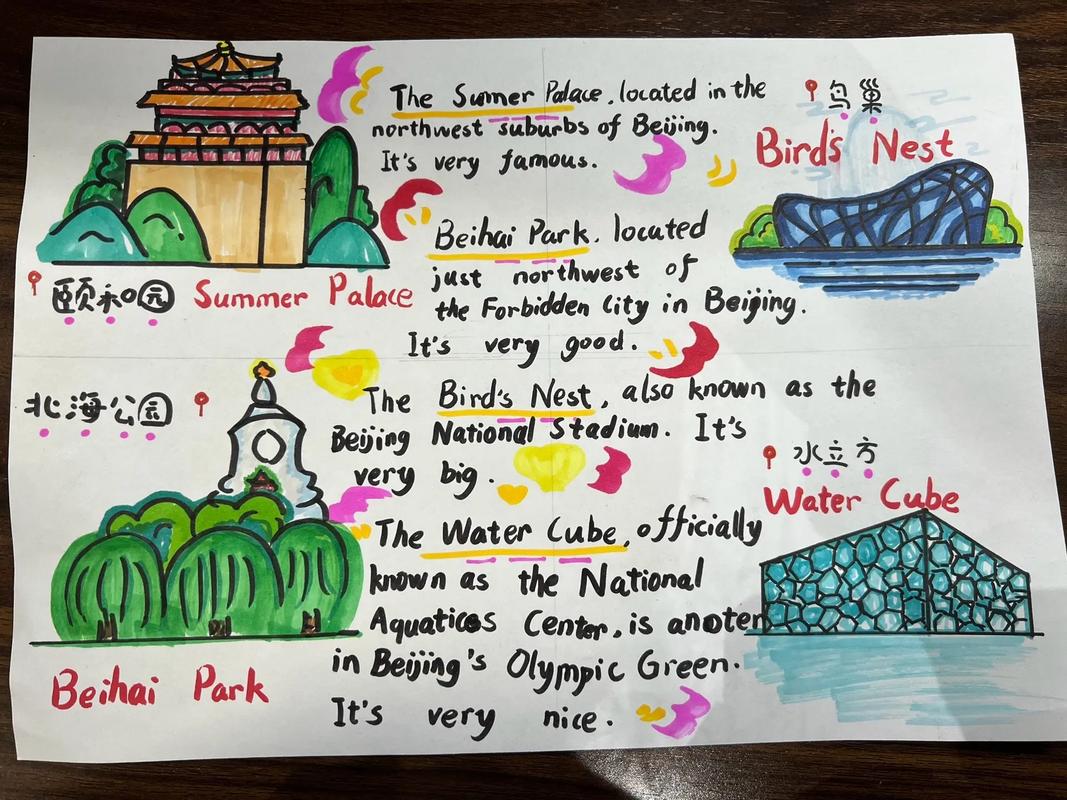 The Sumner Palace, located in the
northwest suburbs of Beijing.
It's very famous.
颐和园 Summer Palace
鸟巢
Bird's Nest
Beihai Park. located
just northwest of
the Forbidden City in Beijing.
It's very good.
北海公园
Beihai Park
The Bird's Nest, also known as the
Beijing National Stadium. It's
very big.
水立方
Water Cube
The Water Cube, officially
known as the National
Aquaticos Center, is anoter
in Beijing's Olympic Green.
It's very nice.